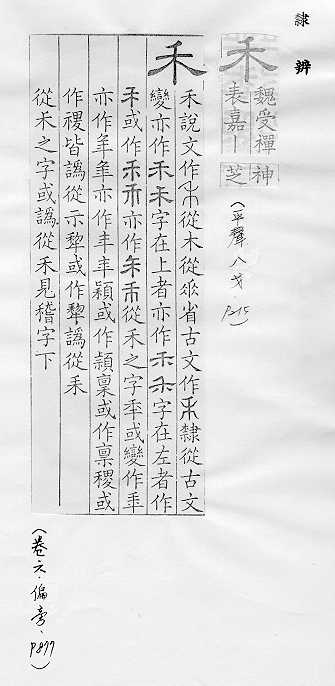 隸辨
禾 魏受禪神
表嘉｜芝
(平聲八戈·P215)
禾 禾說文作從木從省古文作禾隸從古文
變亦作禾禾字在上者亦作禾字在左者作
禾或作亦作從禾之字秊或變作
亦作亦作穎或作頴稟或作禀稷或
作皆譌從示犂或作譌從耒
從禾之字或譌從禾見稽字下
(卷六·偏旁·P877)